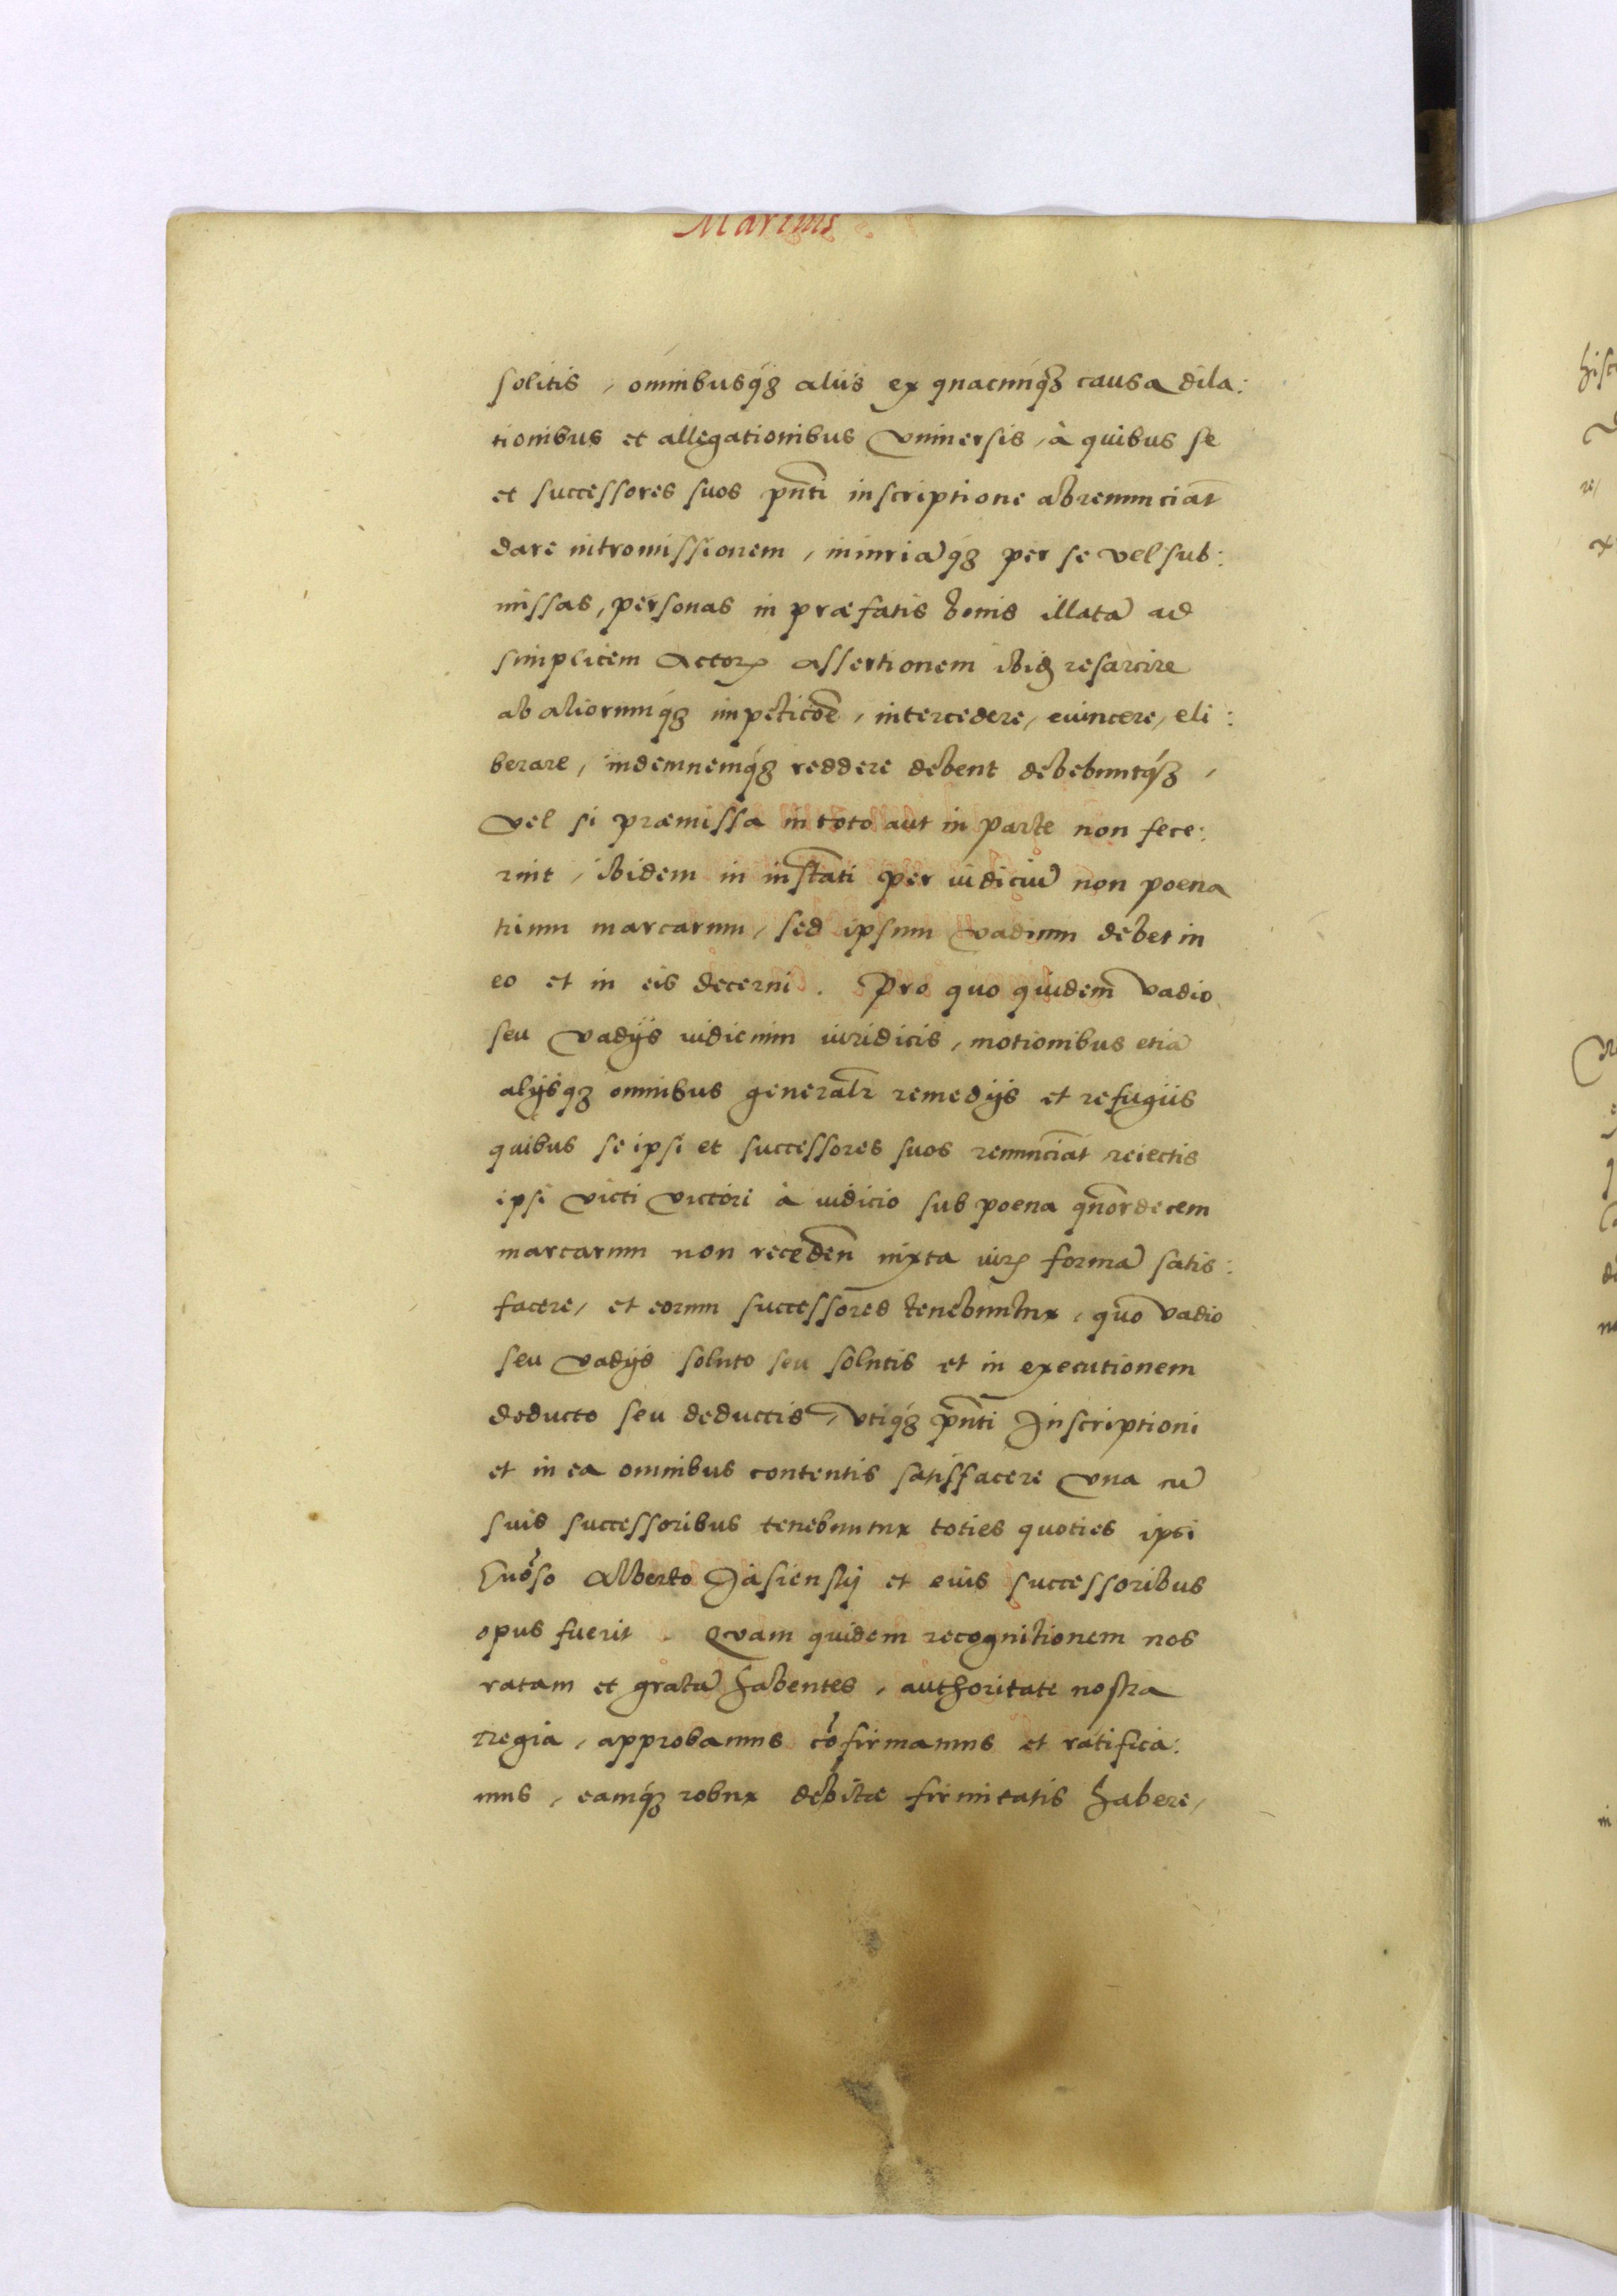 Martius
solitis, omnibusq́ꝫ aliis ex quacunq́ꝫ causa dila:
tionibus et allegationibus vniuersis, à quibus se
et successores suos pn̄ti inscriptione abrenunciāt
dare intromissionem, iniuriāq́ꝫ per se vel sub:
missas, personas in præfatis bonis illatā ad
simplicem actoꝝ assertionem ibiꝫ resarcire
ab aliorumq́ꝫ impeticōe, intercedere, euincere, eli:
berare, indemnemq́ꝫ reddere debent debebuntq́ꝫ,
vel si præmissa in toto aut in parte non fece:
rint, ibidem in instāti per iudiciū non poena
trium marcarum, sed ipsum vadium debet in
eo et in eis decerni. Pro quo quidem vadio
seu vadijs iudicium iuridicis, motionibus etiā
alijsqꝫ omnibus generalr̄ remedijs et refugiis
quibus se ipsi et successores suos renunciāt reiectis
ipsi victi victori à iudicio sub poena qn̄ordecem
marcarum non receden̄ iuxta iurꝭ formā satis:
facere, et eorum successores tenebuntur, quo vadio
seu vadijs soluto seu solutis et in executionem
deducto seu deductis, vtiq́ꝫ pn̄ti Inscriptioni
et in ea omnibus contentis satisfacere vna cū
suis successoribus tenebuntur toties quoties ipsi
Gnōso Alberto Jasienskij et eius successoribus
opus fuerit. Quam quidem recognitionem nos
ratam et gratā habentes, authoritate nostra
regia, approbamus cōfirmamus et ratifica:
mus, eamq́ꝫ robur debitæ firmitatis habere,